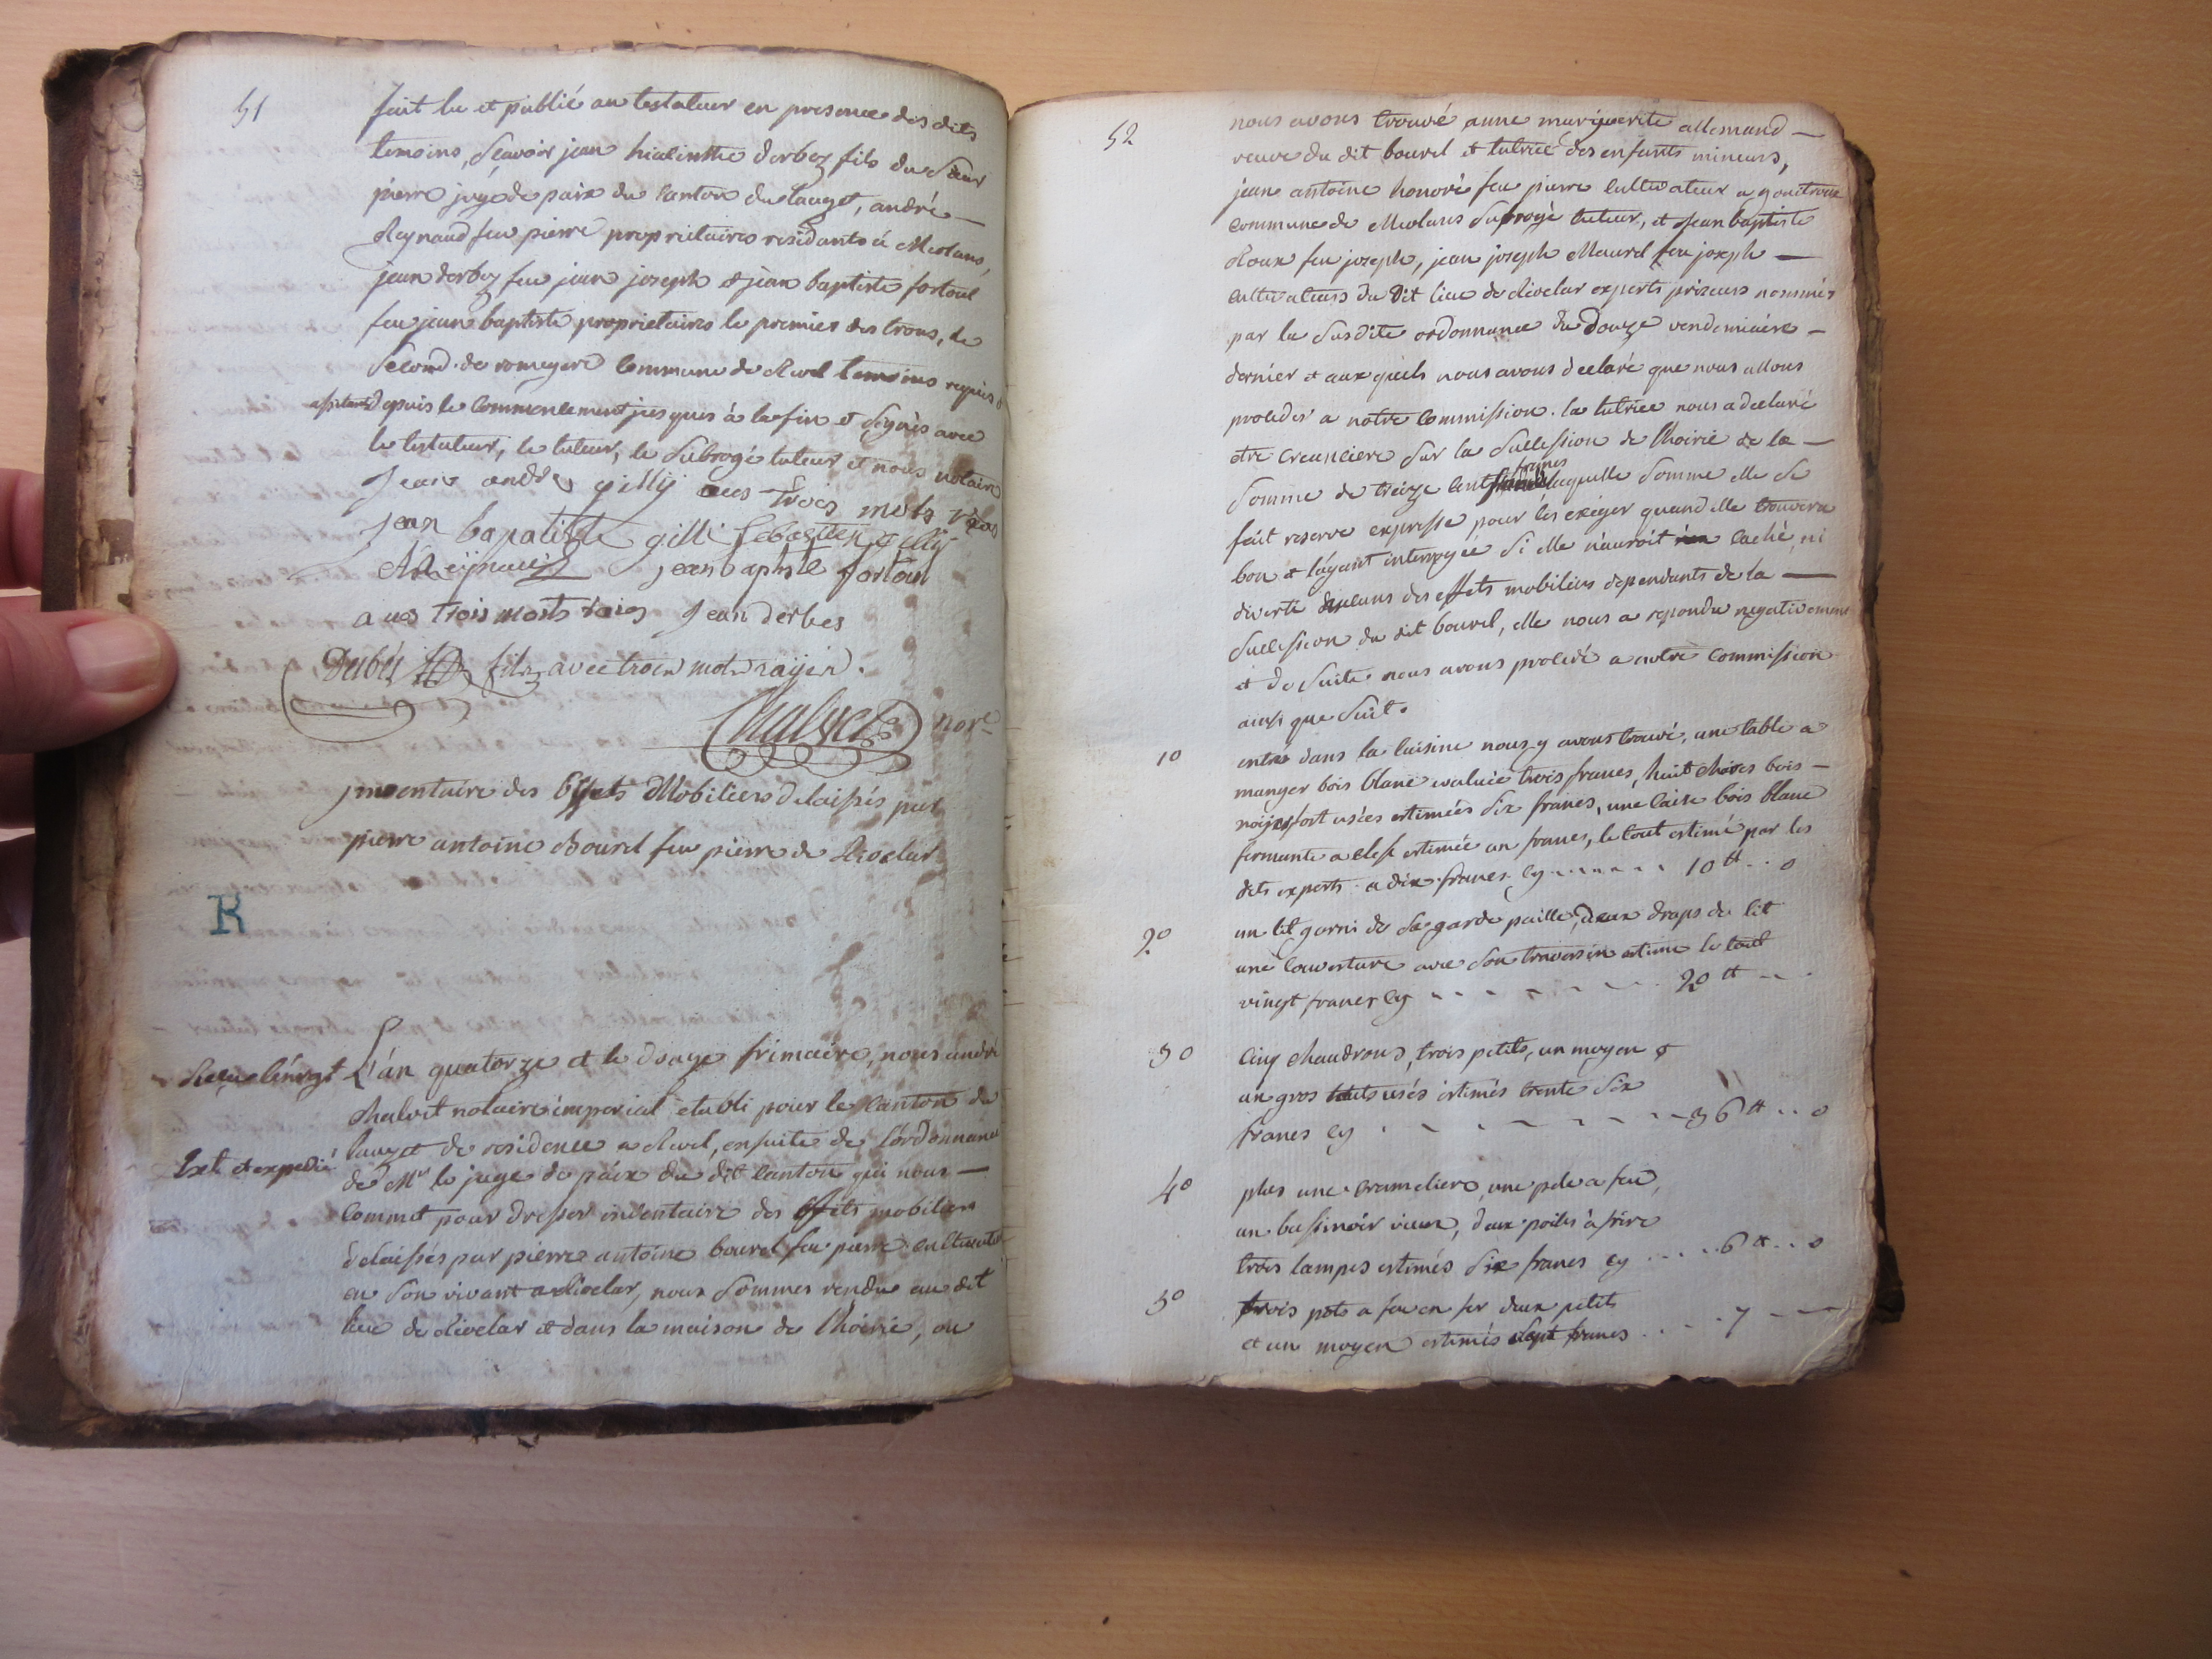 51
fait lu et publié au testateur en presence des dits
temoins, Sçavoir jean hiacinthe derbez fils du Sieur
pierre juge de paix du Canton du lauzet, andré
Reynaud feu pierre proprietaires residants à Meolans,
jean derbez feu jean joseph & jean baptiste fortoul
feu jean baptiste proprietaires le premier des trous, le
Second de romeyere Commune de Revel temoins requis &
assistants depuis le Commencement jusques à la fin et Signés avec
le testateur, le tuteur, le Subrogé tuteur et nous notaire
Jean andre gilly avec trois mots raÿes
jean bapatiste gilli Sebastien gilly
A Reÿnaud jean baptiste fortoul
avec trois mots raies Jean derbes
Derbés fils avec trois mots raÿés.
Chalvet nore
jnventaire des Effets Mobiliers delaissés par
pierre antoine Bourel feu pierre de Rioclar
R
L'án quatorze et le douze frimaire, nous andré
Chalvet notaire imperial etabli pour le Canton du
lauzet de residence a Revel, ensuite de l'ordonnance
Ext. et expedié
de Mr le juge de paix du dit Canton qui nous
Commet pour dresser inventaire des Effets mobiliers
delaissés par pierre antoine bourel feu pierre Cultivateur
en Son vivant a Rioclar, nous Sommes rendu au dit
lieu de Rioclar et dans la maison de l'hoirie, ou
52
nous avons trouvé anne marguerite allemand
veuve du dit bourel et tutrice des enfants mineurs,
jean antoine honoré feu pierre Cultivateur a
Commune de Meolans Subrogé tuteur, et Jean baptiste
Roux feu joseph, jean joseph Maurel feu joseph
Cultivateurs du Dit lieu de Rioclar experts priseurs nommés
par la Susdite ordonnance du Douze vendemiaire
dernier et aux quels nous avons declaré que nous allons
proceder a notre Commission. la tutrice nous a declaré
etre Creanciere Sur la Succession de l'hoirie de la
Somme de treize Cent francs laquelle Somme elle Se
fait reserve expresse pour les exiger quand elle trouvera
bon et l'ayant interrogée Si elle n'auroit rien Caché, ni
diverti aucuns des effets mobiliers dependants de la
Succession du dit bourel, elle nous a repondu negativement
et de Suite nous avons procedé a notre Commission
ainsi que Suit.
10 entrés dans la Cuisine nous y avons trouvé, une table a
manger bois blanc evaluée trois francs, huit chaises bois
noijer fort usées estimées Six francs, une Caisse bois blanc
fermante a clef estimée un franc, le tout estimé par les
dits experts a dix francs Cy 10 tt .. 0
20 un lit garni de Sa garde paille, deux draps de lit
une Couverture avec Son traversin estime le tout
vingt francs Cy 20 tt
30 Cinq chaudrons, trois petits, un moyen &
un gros touts usés estimés trente Six
francs Cy 36 tt .. 0
40 plus une Cramaliere, une pele a feu,
un bassinoir vieux, deux poiles à frire
trois lampes estimés Six francs Cy 6 tt .. 0
50 trois pots a feu en fer deux petits
et un moyen estimés Sept francs 7